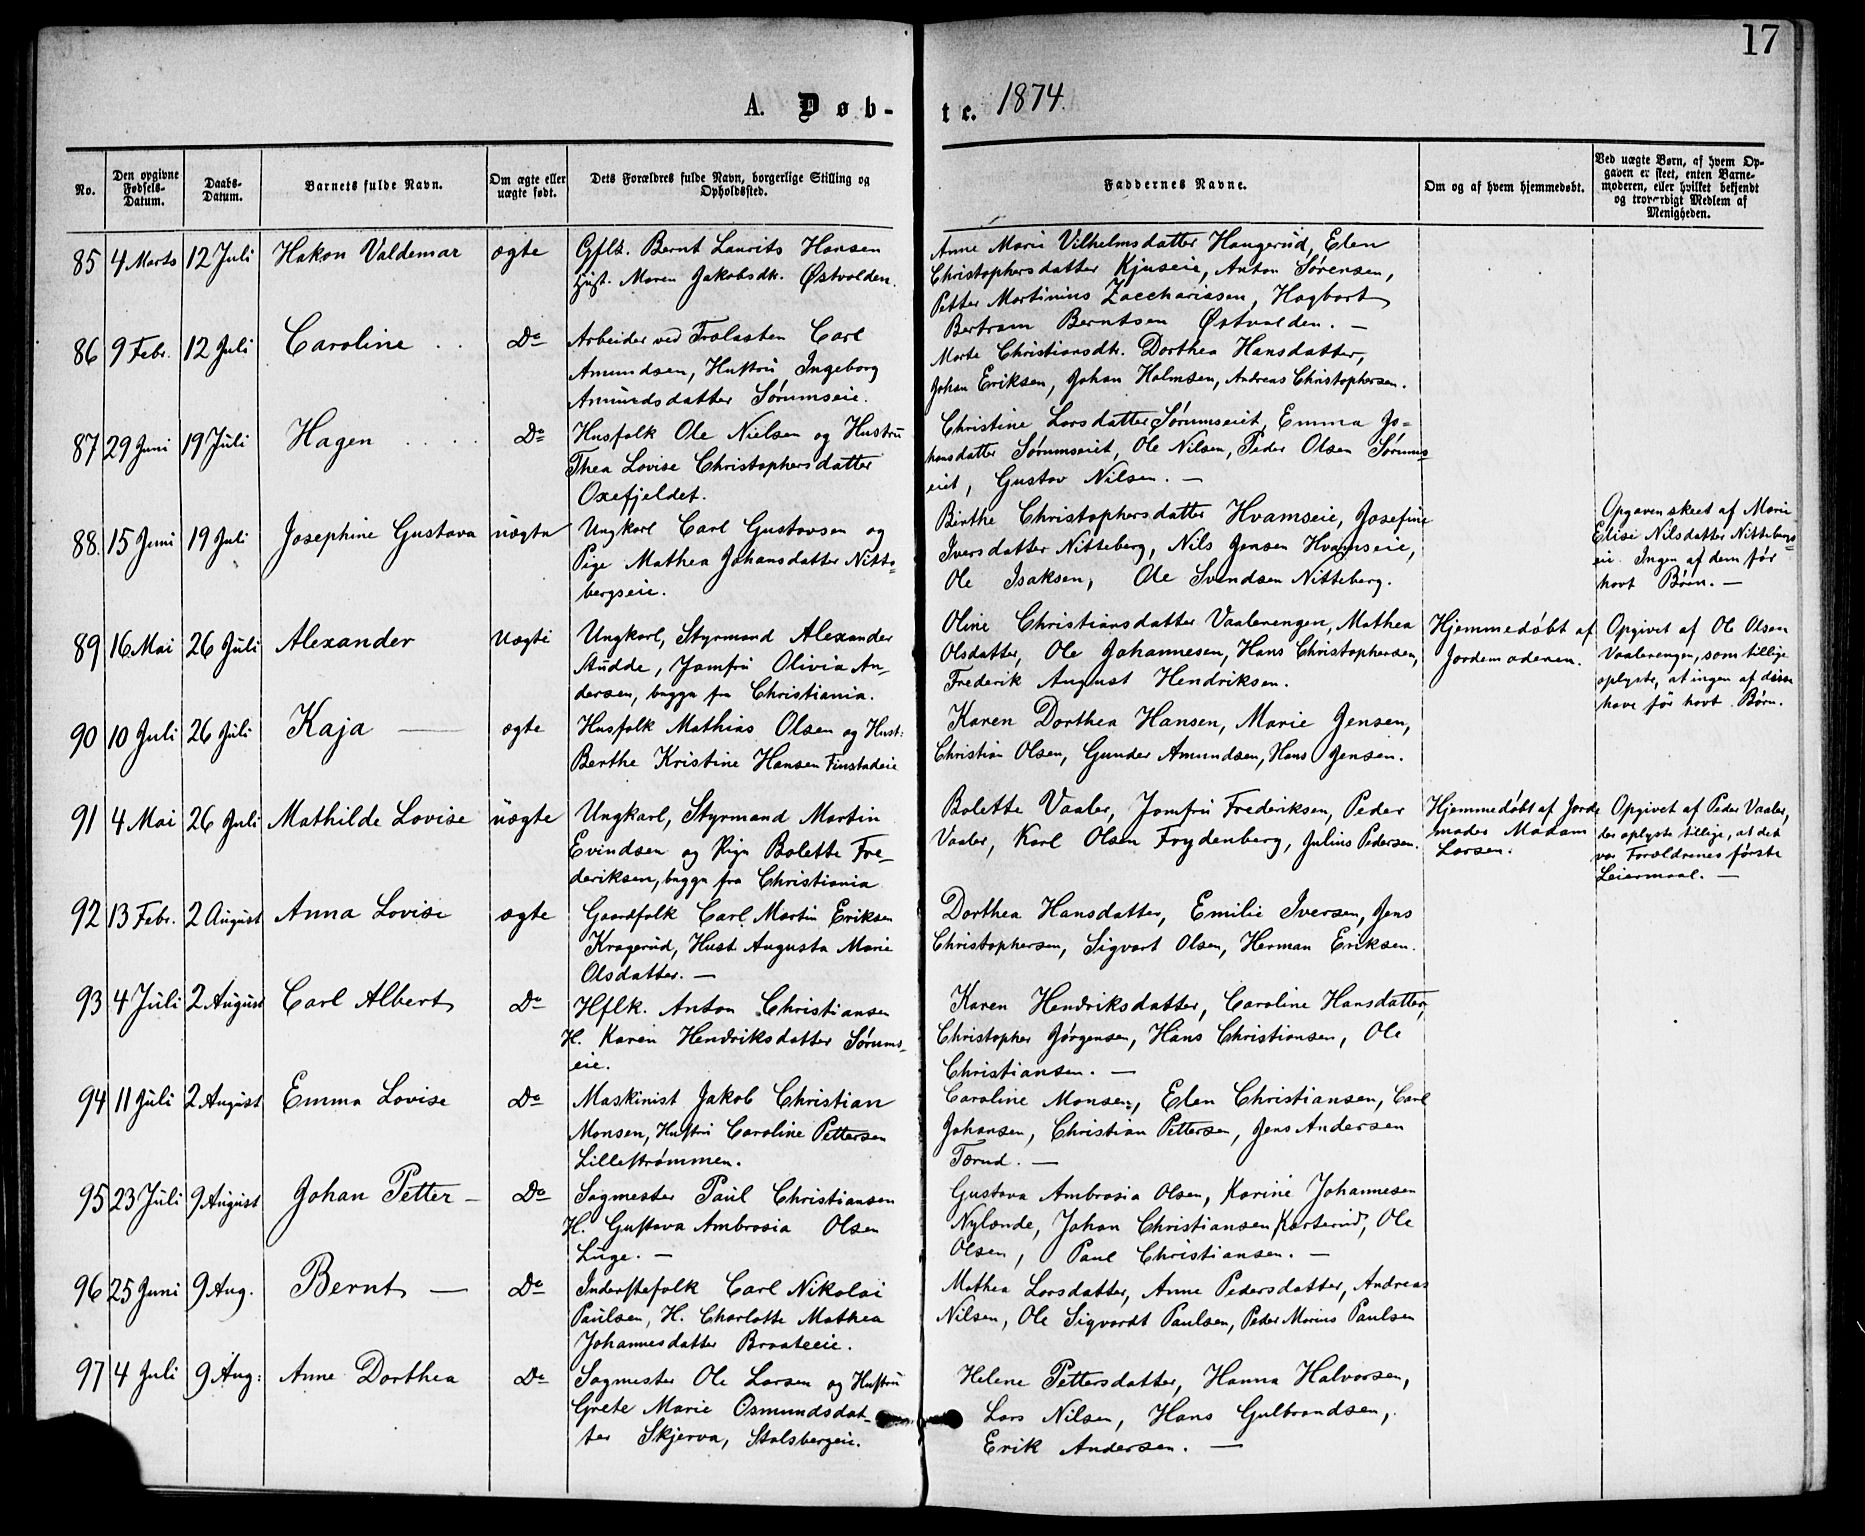 17
A. Døb-
te. 1874.
No.
Den opgivne Fødsels-Datum.
Daabs-Datum.
Barnets fulde Navn.
Om ægte eller uægte født.
Dets Forældres fulde Navn, borgerlige Stilling og Opholdssted.
Faddernes Navne.
Om og af hvem hjemmedøbt.
Ved uægte Børn, af hvem Opgaven er skeet, enten Barnemoderen, eller hvilket bekjendt og troværdigt Medlem af Menigheden.
85 4 Marts 12 Juli Hakon Valdemar ægte
Gflk. Bernt Laurits Hansen
Hust. Maren Jakobsdtr. Østvolden.
Anne Marie Vilhelmsdatter Haugerud, Elen
Christophersdatter Kjuseie, Anton Sørensen,
Petter Martinius Zacchariasen, Hagbart
Bertram Berntsen Østvolden. —
86 9 Febr. 12 Juli Caroline . . Do
Arbeider ved Trælasten Carl
Amundsen, Hustru Ingeborg
Amundsdatter Sørumseie.
Marte Christiansdtr. Dorthea Hansdatter,
Johan Eriksen, Johan Holmsen, Andreas Christophersen.
87 29 Juni 19 Juli Hagen . . . . Do
Husfolk Ole Nielsen og Hustru
Thea Lovise Christophersdatter
Oxefjeldet.
Christine Larsdatter Sørumseiet, Emma Jo=
hansdatter Sørumseiet, Ole Nilsen, Peder Olsen Sørums=
eiet, Gustav Nilsen. —
88. 15 Juni 19 Juli Josephine Gustava uægte
Ungkarl Carl Gustavsen og
Pige Mathea Johansdatter Nitte=
bergseie.
Birthe Christophersdatter Hvamseie, Josefine
Iversdatter Nitteberg, Nils Jensen Hvamseie,
Ole Isaksen, Ole Svendsen Nitteberg.
Opgaven skeet af Marie
Elise Nilsdatter Nittebergs=
eie. Ingen af dem før
havt Børn. —
89 16. Mai 26 Juli Alexander uægte
Ungkarl, Styrmand Alexander
Studde, Jomfru Olivia An-
dersen, begge fra Christiania.
Oline Christiansdatter Vaalerengen, Mathea
Olsdatter, Ole Johannesen, Hans Christophersen,
Frederik August Hendriksen.
Hjemmedøbt af
Jordemoderen.
Opgivet af Ole Olsen
Vaalerengen, som tillige
oplyste, at ingen af disse
have før havt Børn.
90 10 Juli 26 Juli Kaja — ægte
Husfolk Mathias Olsen og Hust:
Berthe Kristine Hansen Finstadeie
Karen Dorthea Hansen, Marie Jensen,
Christian Olsen, Gunder Amundsen, Hans Jensen.
91 4 Mai 26 Juli Mathilde Lovise uægte
Ungkarl, Styrmand Martin
Evindsen og Pige Bolette Fre-
deriksen, begge fra Christiania
Bolette Vaaler, Jomfru Frederiksen, Peder
Vaaler, Karl Olsen Frydenberg, Julius Pedersen.
Hjemmedøbt af Jorde
moder Madam
Larsen.
Opgivet af Peder Vaaler,
der oplyste tillige, at det
var Forældrenes første
Leiermaal. —
92 13 Febr. 2 August Anna Lovise ægte
Gaardfolk Carl Martin Eriksen
Kragerud, Hust Augusta Marie
Olsdatter. —
Dorthea Hansdatter, Emilie Iversen, Jens
Christophersen, Sigvart Olsen, Herman Eriksen.
93 4 Juli 2 August Carl Albert Do
Hflk. Anton Christiansen
H. Karen Hendriksdatter Sørums-
eie.
Karen Hendriksdatter, Caroline Hansdatter,
Christopher Jørgensen, Hans Christiansen, Ole
Christiansen. —
94 11 Juli 2 August Emma Lovise Do
Maskinist Jakob Christian
Monsen, Hustru Caroline Pettersen
Lillestrømmen.
Caroline Monsen, Elen Christiansen, Carl
Johansen, Christian Pettersen, Jens Andersen
Torud. —
95 23 Juli 9 August Johan Petter — Do
Sagmester Paul Christiansen
H. Gustava Ambrosia Olsen
Luge. —
Gustava Ambrosia Olsen, Karine Johannesen
Nylænde, Johan Christiansen Karterud, Ole
Olsen, Paul Christiansen. —
96 25 Juni 9 Aug. Bernt — Do
Inderstefolk Carl Nikolai
Paulsen, H. Charlotte Mathea
Johannesdatter Braateeie.
Mathea Larsdatter, Anne Pedersdatter, Andreas
Nilsen, Ole Sigvardt Paulsen, Peder Marius Paulsen
97 4 Juli 9 Aug: Anne Dorthea Do
Sagmester Ole Larsen og Hustru
Grete Marie Osmundsdat-
ter Skjerva, Stalsbergeie.
Helene Pettersdatter, Hanna Halvorsen,
Lars Nilsen, Hans Gulbrandsen,
Erik Andersen. —